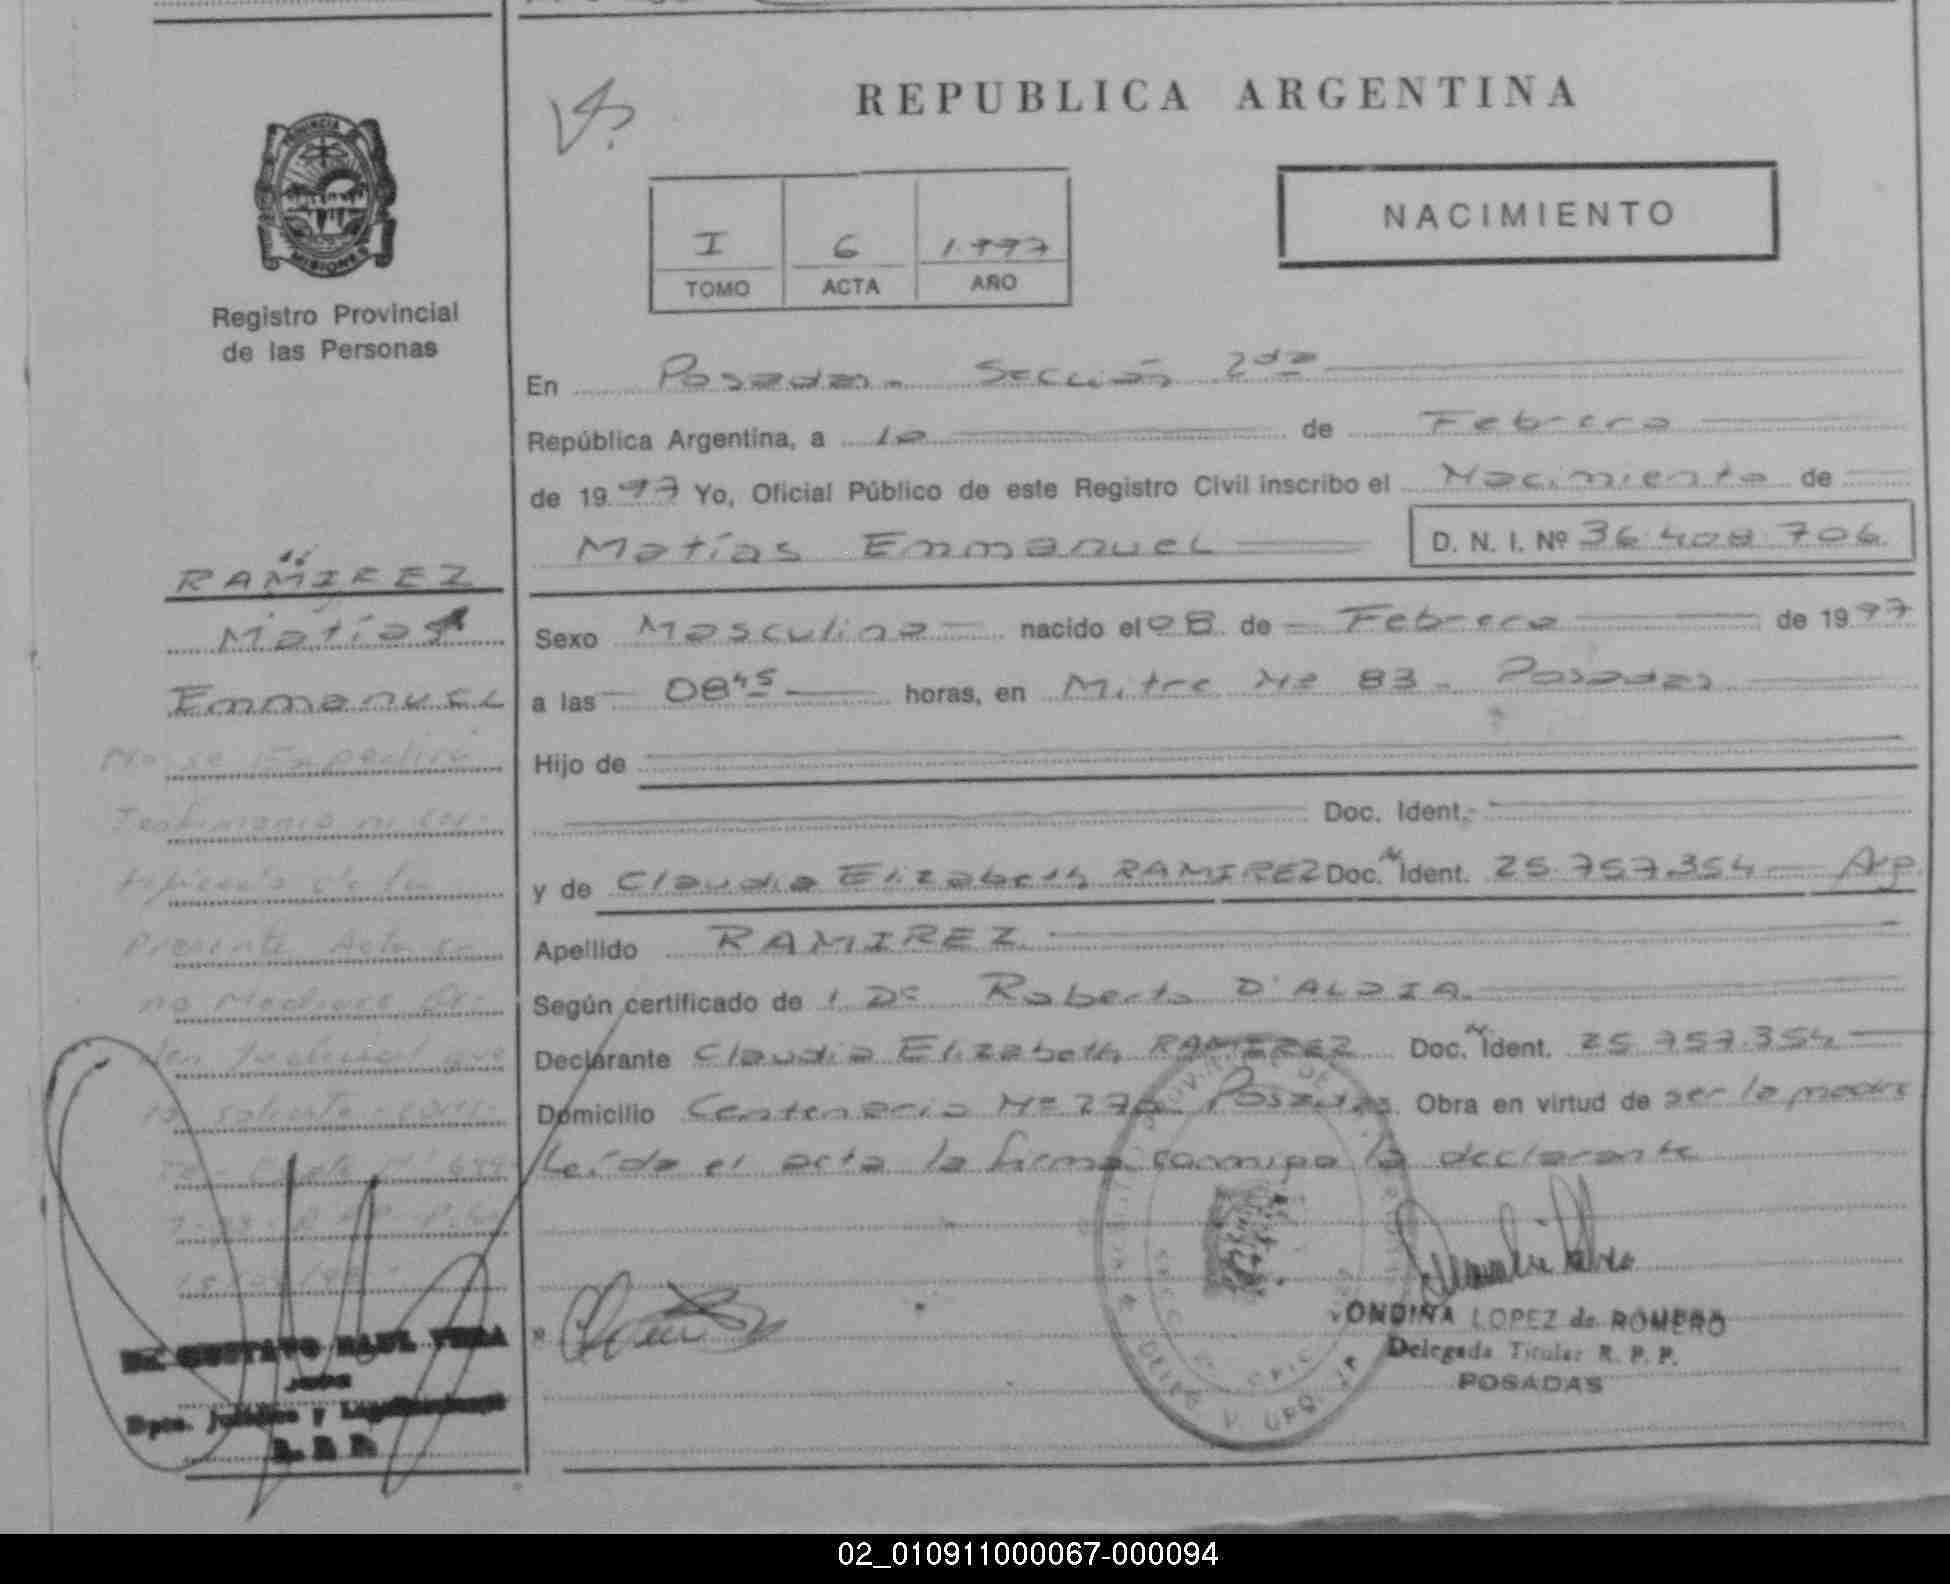 REPUBLICA ARGENTINA
PROVINCIA DE
MISIONES
Registro Provincial
de las Personas
I 6 1.997
TOMO ACTA AÑO
NACIMIENTO
En Posadas - Sección 2da
República Argentina, a 10 de Febrero
de 1997 Yo, Oficial Público de este Registro Civil inscribo el Nacimiento de
Matías Emmanuel D. N. I. Nº 36.408.706
RAMIREZ
Matías
Emmanuel
Sexo Masculino nacido el 08 de Febrero de 1997
a las 08 45 horas, en Mitre Nº 83 - Posadas
Hijo de
Doc. Ident.
y de Claudia Elizabeth RAMIREZ Doc. Ident. 25.757.354 Arg.
Apellido RAMIREZ
Según certificado de Dr Roberto D'ALOIA
Declarante Claudia Elizabeth RAMIREZ Doc. Ident. 25.757.354
Domicilio Centenario Nº Posadas. Obra en virtud de ser la madre
Leída el acta la firma conmigo la declarante
No se expedirá
Testimonio ni
de la
Presente Acta
no Mediare
que
lo solicite
ONDINA LOPEZ de ROMERO
Delegada Titular R. P. P.
POSADAS
Dr. GUSTAVO RAUL VERA
Dpto. Jurídico y
R. P. P.
02_010911000067-000094